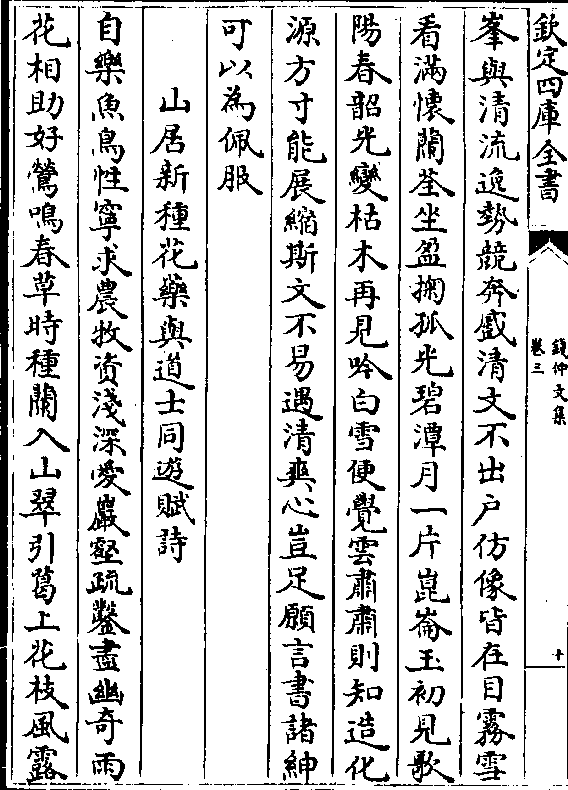 欽定四庫全書
錢仲文集
卷三
十
峯與清流逸勢競奔盛清文不出户仿像皆在目霧雪
看滿懷蘭荃坐盈掬孤光碧潭月一片崑崙玉初見歌
陽春韶光變枯木再見吟白雪便覺雲肅肅則知造化
源方寸能展縮斯文不易遇清爽心豈足願言書諸紳
可以為佩服
山居新種花藥與道士同遊賦詩
自樂魚鳥性寧求農牧資淺深愛巖壑疏鑿盡幽奇雨
花相助好鶯鳴春草時種蘭入山翠引葛上花枝風露